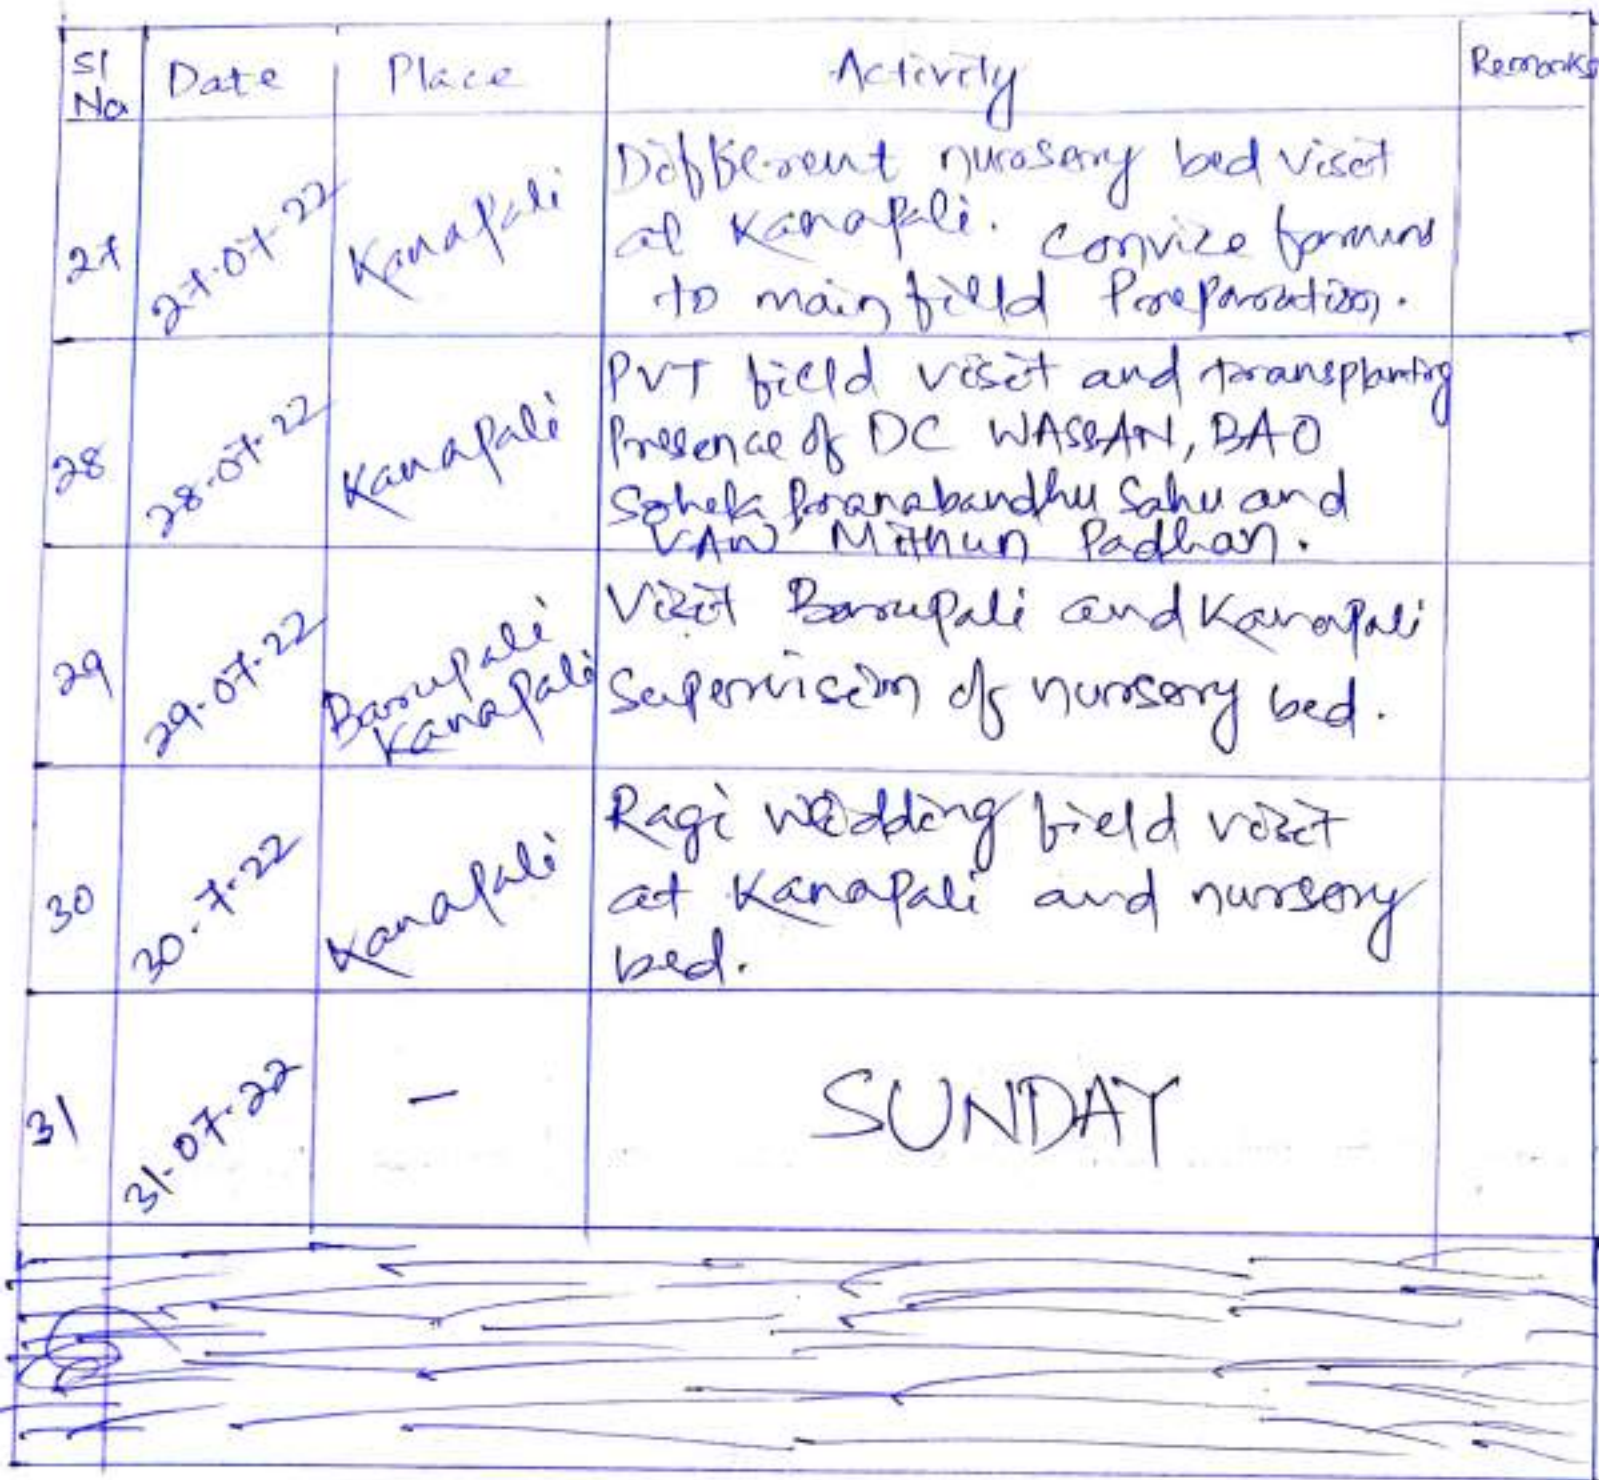 Sl No Date Place Activity Remarks
27 27.07.22 Kanapali Different nursery bed visit
at Kanapali. Convize farmers
to main field Preparation.
28 28.07.22 Kanapali PVT field visit and transplanting
Presence of DC WASSAN, BAO
Sohela Pranabandhu Sahu and
VAW Mithun Padhan.
29 29.07.22 Barupali Kanapali Vizit Barupali and Kanapali
Supervision of nursery bed.
30 30.7.22 Kanapali Ragi Weidding field vizit
at Kanapali and nursery
bed.
31 31.07.22 - SUNDAY